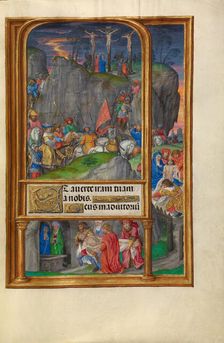 Et auerte iram tuam
a nobis
Deus in adiutoriu